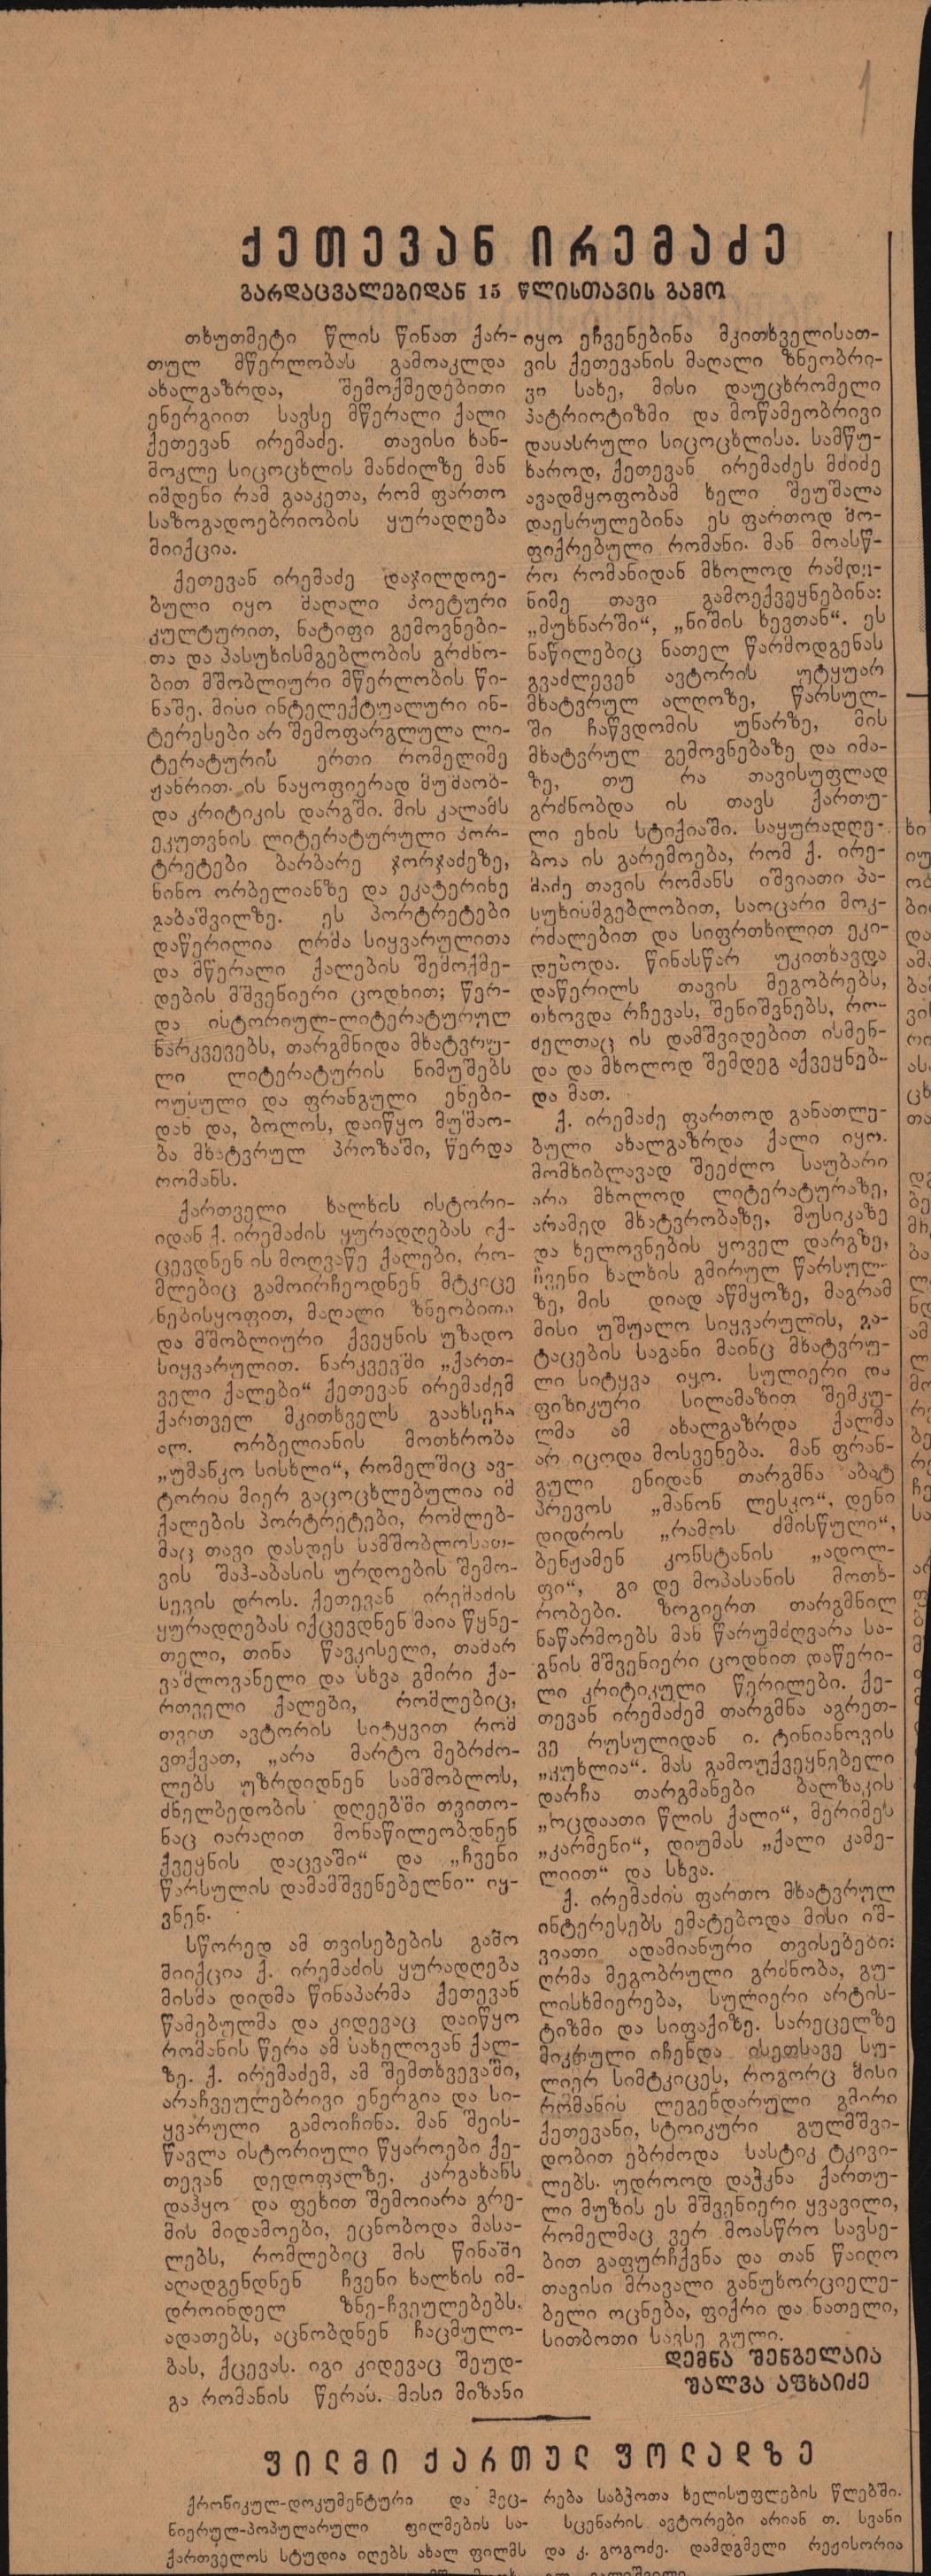 1
ქეთევან ირემაძე
გარდაცვალებიდან 15 წლისთავის გამო
თხუთმეტი წლის წინათ ქარ-
თულ მწერლობას გამოაკლდა
ახალგაზრდა, შემოქმედებითი
ენერგიით სავსე მწერალი ქალი
ქეთევან ირემაძე. თავისი ხან-
მოკლე სიცოცხლის მანძილზე მან
იმდენი რამ გააკეთა, რომ ფართო
საზოგადოებრიობის ყურადღება
მიიქცია.
ქეთევან ირემაძე დაჯილდოე-
ბული იყო მაღალი პოეტური
კულტურით, ნატიფი გემოვნები-
თა და პასუხისმგებლობის გრძნო-
ბით მშობლიური მწერლობის წი-
ნაშე. მისი ინტელექტუალური ინ-
ტერესები არ შემოფარგლულა ლი-
ტერატურის ერთი რომელიმე
ჟანრით. ის ნაყოფიერად მუშაობ-
და კრიტიკის დარგში. მის კალამს
ეკუთვნის ლიტერატურული პორ-
ტრეტები ბარბარე ჯორჯაძეზე,
ნინო ორბელიანზე და ეკატერინე
გაბაშვილზე. ეს პორტრეტები
დაწერილია ღრმა სიყვარულითა
და მწერალი ქალების შემოქმე-
დების მშვენიერი ცოდნით; წერ-
და ისტორიულ-ლიტერატურულ
ნარკვევებს, თარგმნიდა მხატვრუ-
ლი ლიტერატურის ნიმუშებს
რუსული და ფრანგული ენები-
დან და, ბოლოს, დაიწყო მუშაო-
ბა მხატვრულ პროზაში, წერდა
რომანს.
ქართველი ხალხის ისტორი-
იდან ქ. ირემაძის ყურადღებას იქ-
ცევდნენ ის მოღვაწე ქალები, რო-
მლებიც გამოირჩეოდნენ მტკიცე
ნებისყოფით, მაღალი ზნეობითა
და მშობლიური ქვეყნის უზადო
სიყვარულით. ნარკვევში „ქართ-
ველი ქალები“ ქეთევან ირემაძემ
ქართველ მკითხველს გაახსენა
ალ. ორბელიანის მოთხრობა
„უმანკო სისხლი“, რომელშიც ავ-
ტორის მიერ გაცოცხლებულია იმ
ქალების პორტრეტები, რომლებ-
მაც თავი დასდეს სამშობლოსათ-
ვის შაჰ-აბასის ურდოების შემო-
სევის დროს. ქეთევან ირემაძის
ყურადღებას იქცევდნენ მაია წყნე-
თელი, თინა წავკისელი, თამარ
ვაშლოვანელი და სხვა გმირი ქა-
რთველი ქალები, რომლებიც,
თვით ავტორის სიტყვით რომ
ვთქვათ, „არა მარტო მებრძო-
ლებს უზრდიდნენ სამშობლოს,
ძნელბედობის დღეებში თვითო-
ნაც იარაღით მონაწილეობდნენ
ქვეყნის დაცვაში“ და „ჩვენი
წარსულის დამამშვენებელნი“ იყ-
ვნენ.
სწორედ ამ თვისებების გამო
მიიქცია ქ. ირემაძის ყურადღება
მისმა დიდმა წინაპარმა ქეთევან
წამებულმა და კიდევაც დაიწყო
რომანის წერა ამ სახელოვან ქალ-
ზე. ქ. ირემაძემ, ამ შემთხვევაში,
არაჩვეულებრივი ენერგია და სი-
ყვარული გამოიჩინა. მან შეის-
წავლა ისტორიული წყაროები ქე-
თევან დედოფალზე, კარგახანს
დაჰყო და ფეხით შემოიარა გრე-
მის მიდამოები, ეცნობოდა მასა-
ლებს, რომლებიც მის წინაშე
აღადგენდნენ ჩვენი ხალხის იმ-
დროინდელ ზნე-ჩვეულებებს,
ადათებს, აცნობდნენ ჩაცმულო-
ბას, ქცევას. იგი კიდევაც შეუდ-
გა რომანის წერას. მისი მიზანი
იყო ეჩვენებინა მკითხველისათ-
ვის ქეთევანის მაღალი ზნეობრი-
ვი სახე, მისი დაუცხრომელი
პატრიოტიზმი და მოწამეობრივი
დასასრული სიცოცხლისა. სამწუ-
ხაროდ, ქეთევან ირემაძეს მძიძე
ავადმყოფობამ ხელი შეუშალა
დაესრულებინა ეს ფართოდ მო-
ფიქრებული რომანი. მან მოასწ-
რო რომანიდან მხოლოდ რამდე-
ნიმე თავი გამოექვეყნებინა:
„მუხნარში“, „ნიშის ხევთან“. ეს
ნაწილებიც ნათელ წარმოდგენას
გვაძლევენ ავტორის უტყუარ
მხატვრულ ალღოზე, წარსულ-
ში ჩაწვდომის უნარზე, მის
მხატვრულ გემოვნებაზე და იმა-
ზე, თუ რა თავისუფლად
გრძნობდა ის თავს ქართუ-
ლი ენის სტიქიაში. საყურადღე-
ბოა ის გარემოება, რომ ქ. ირე-
მაძე თავის რომანს იშვიათი პა-
სუხისმგებლობით, საოცარი მოკ-
რძალებით და სიფრთხილით ეკი-
დებოდა. წინასწარ უკითხავდა
დაწერილს თავის მეგობრებს,
თხოვდა რჩევას, შენიშვნებს, რო-
მელთაც ის დამშვიდებით ისმენ-
და და მხოლოდ შემდეგ აქვეყნებ-
და მათ.
ქ. ირემაძე ფართოდ განათლე-
ბული ახალგაზრდა ქალი იყო.
მომხიბლავად შეეძლო საუბარი
არა მხოლოდ ლიტერატურაზე,
არამედ მხატვრობაზე, მუსიკაზე
და ხელოვნების ყოველ დარგზე,
ჩვენი ხალხის გმირულ წარსულ-
ზე, მის დიად აწმყოზე, მაგრამ
მისი უშუალო სიყვარულის, გა-
ტაცების საგანი მაინც მხატვრუ-
ლი სიტყვა იყო. სულიერი და
ფიზიკური სილამაზით შემკუ-
ლმა ამ ახალგაზრდა ქალმა
არ იცოდა მოსვენება. მან ფრან-
გული ენიდან თარგმნა აბატ
პრევოს „მანონ ლესკო“, დენი
დიდროს „რამოს ძმისწული“,
ბენჟამენ კონსტანის „ადოლ-
ფი“, გი დე მოპასანის მოთხ-
რობები. ზოგიერთ თარგმნილ
ნაწარმოებს მან წარუმძღვარა სა-
გნის მშვენიერი ცოდნით დაწერი-
ლი კრიტიკული წერილები. ქე-
თევან ირემაძემ თარგმნა აგრეთ-
ვე რუსულიდან ი. ტინიანოვის
„კუხლია“. მას გამოუქვეყნებელი
დარჩა თარგმანები ბალზაკის
„ოცდაათი წლის ქალი“, მერიმეს
„კარმენი“, დიუმას „ქალი კამე-
ლიით“ და სხვა.
ქ. ირემაძის ფართო მხატვრულ
ინტერესებს ემატებოდა მისი იშ-
ვიათი ადამიანური თვისებები:
ღრმა მეგობრული გრძნობა, გუ-
ლისხმიერება, სულიერი არტის-
ტიზმი და სიფაქიზე. სარეცელზე
მიკრული იჩენდა ისეთსავე სუ-
ლიერ სიმტკიცეს, როგორც მისი
რომანის ლეგენდარული გმირი
ქეთევანი, სტოიკური გულმშვი-
დობით ებრძოდა სასტიკ ტკივი-
ლებს. უდროოდ დაჭკნა ქართუ-
ლი მუზის ეს მშვენიერი ყვავილი,
რომელმაც ვერ მოასწრო სავსე-
ბით გაფურჩქვნა და თან წაიღო
თავისი მრავალი განუხორციელე-
ბელი ოცნება, ფიქრი და ნათელი,
სითბოთი სავსე გული.
დემნა შენგელაია
შალვა აფხაიძე
ფილმი ქართულ ფოლადზე
ქრონიკულ-დოკუმენტური და მეც-
ნიერულ-პოპულარული ფილმების სა-
ქართველოს სტუდია იღებს ახალ ფილმს
რება საბჭოთა ხელისუფლების წლებში.
სცენარის ავტორები არიან თ. სვანი
და კ. გოგოძე. დამდგმელი რეჟისორია